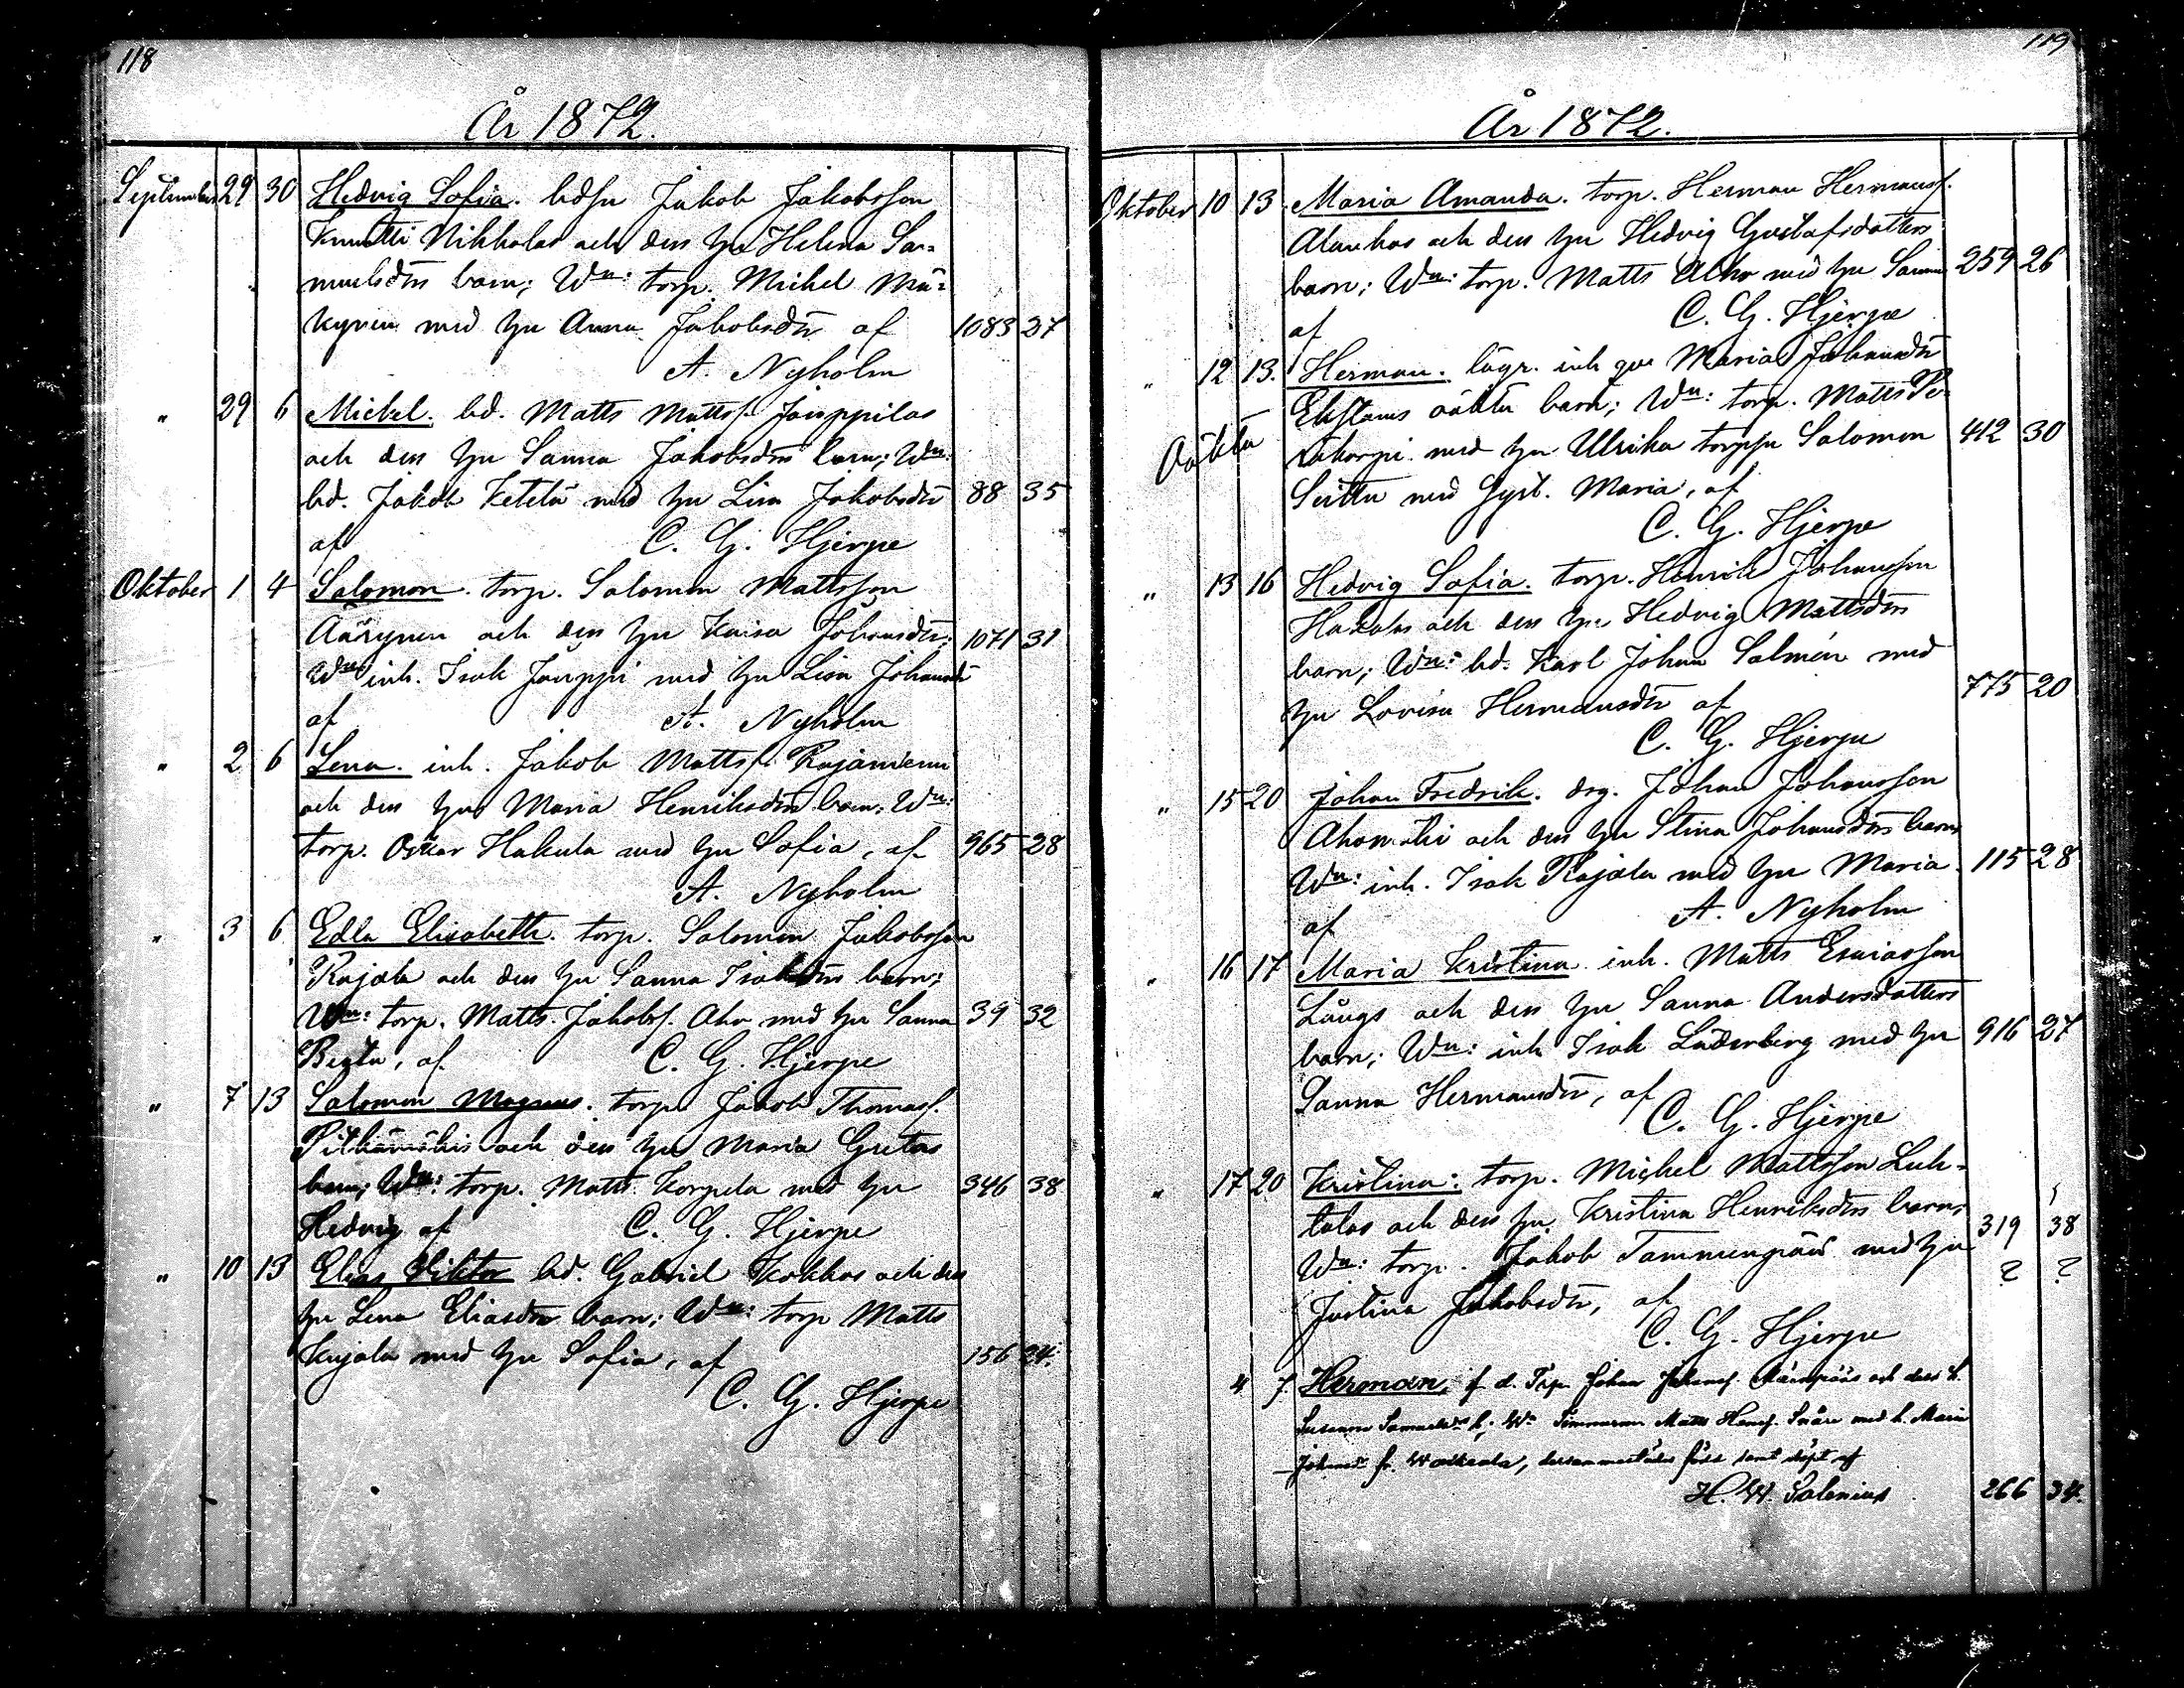 118
År 1872.
September 29 30 Hedvig Sofia. bdsn Jakob Jakobsson
Knuutti Nikkolas och dess hu Helena Sa-
muelsdrs barn; Wn: torp. Michel Mä-
kynen med hu Anna Jakobsdr af 1083 27
A. Nyholm
" 29 6 Mickel. bd. Matts Mattss. Jouppilas
och dess hu Sanna Jakobsdrs barn; Wn:
bd. Jakob Ketelä med hu Lisa Jakobsdr 88 35
af C. G. Hjerpe
Oktober 1 4 Salomon. torp. Salomon Mattsson
Äärynen och dess hu Kaisa Johansdr; 1071 31
Wn inh. Isak Jouppi med hu Lisa Johansdr
af A. Nyholm
" 2 6 Lena. inh. Jakob Mattss. Rajaniemi
och dess hu Maria Henriksdrs barn; Wn:
torp. Oskar Hakula med hu Sofia, af 965 28
A. Nyholm
" 3 6 Edla Elisabeth. torp. Salomon Jakobsson
Rajala och dess hu Sanna Isaksdrs barn;
Wn: torp. Matts Jakobss. Aho med hu Sanna 39 32
Beata, af C. G. Hjerpe
" 7 13 Salomon Magnus. torp Jakob Thomass.
Pitkämäkis och dess hu Maria Gretas
barn; Wn: torp. Matts Korpela med hu 346 38
Hedvig af C. G. Hjerpe
" 10 13 Elias Viktor bd. Gabriel Kokkos och dess
hu Lena Eliasdrs barn; Wn: torp Matts
Kujala med hu Sofia, af 156 24.
C. G. Hjerpe
119
År 1872.
Oktober 10 13 Maria Amanda. torp. Herman Hermanss.
och dess hu Hedvig Gustafsdotters
barn; Wn: torp. Matts Alho med hu Sanna 259 26
af C. G. Hjerpe
" 12 13. Herman. lägr. inh qv Maria Johansdr
Ekstams oäkta barn; Wn: torp. Matts Pe-
Oäkta räkorpi med hu Ulrika torpsn Salomon 412 30
med Gyst. Maria, af
C. G. Hjerpe
" 13 16 Hedvig Sofia. torp. Henrik Johansson
och dess hu Hedvig Mattsdrs
barn; Wn: bd. Karl Johan Salmén med
hu Lovisa Hermansdr af 775 20
C. G. Hjerpe
" 15 20 Johan Fredrik. drg. Johan Johansson
Ahomäki och dess hu Stina Johansdrs barn
Wn: inh. Isak Rajala med hu Maria 115 28
af A. Nyholm
" 16 17 Maria Kristina inh. Matts Esaiasson
Långs och dess hu Sanna Andersdotters
barn; Wn: inh Isak Söderberg med hu 916 27
Sanna Hermansdr, af
C. G. Hjerpe
" 17 20 Kristina: torp. Michel Mattsson Luh-
talas och dess hu Kristina Henriksdrs barn; 319 38
Wn: torp. Jakob Tammenpää med hu ? ?
Justina Jakobsdr, af
C. G. Hjerpe
4 7. Herman, f. d. Trp. Johan Johanss. och dess h.
Susanna Samuelsdrs b; Wn Timmerm Matts Hanss. Snåre med h. Maria
Johansdr fr. , dersammestädes född samt döpt af
H. W. Salenius 266 34.